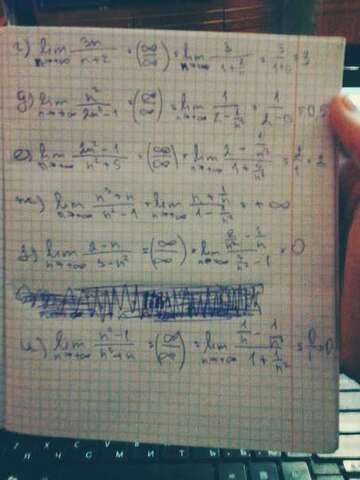 г) lim n→∞ 3n/(n+2) = (∞/∞) = lim n→∞ 3/(1+2/n) = 3/(1+0) = 3
д) lim n→∞ n²/(2n²-1) = (∞/∞) = lim n→∞ 1/(2-1/n²) = 1/(2-0) = 0,5
е) lim n→∞ (2n²-1)/(n²+5) = (∞/∞) = lim n→∞ (2-1/n²)/(1+5/n²) = 2/1 = 2
ж) lim n→∞ (n³+n)/(n²-1) = lim n→∞ (n+1/n)/(1-1/n²) = +∞
з) lim n→+∞ (2-n)/(3-n²) = (∞/∞) = lim n→∞ (2/n²-1/n)/(3/n²-1) = 0
и) lim n→+∞ (n²-1)/(n³+n) = (∞/∞) = lim n→∞ (1/n-1/n³)/(1+1/n²) = 0/1 = 0